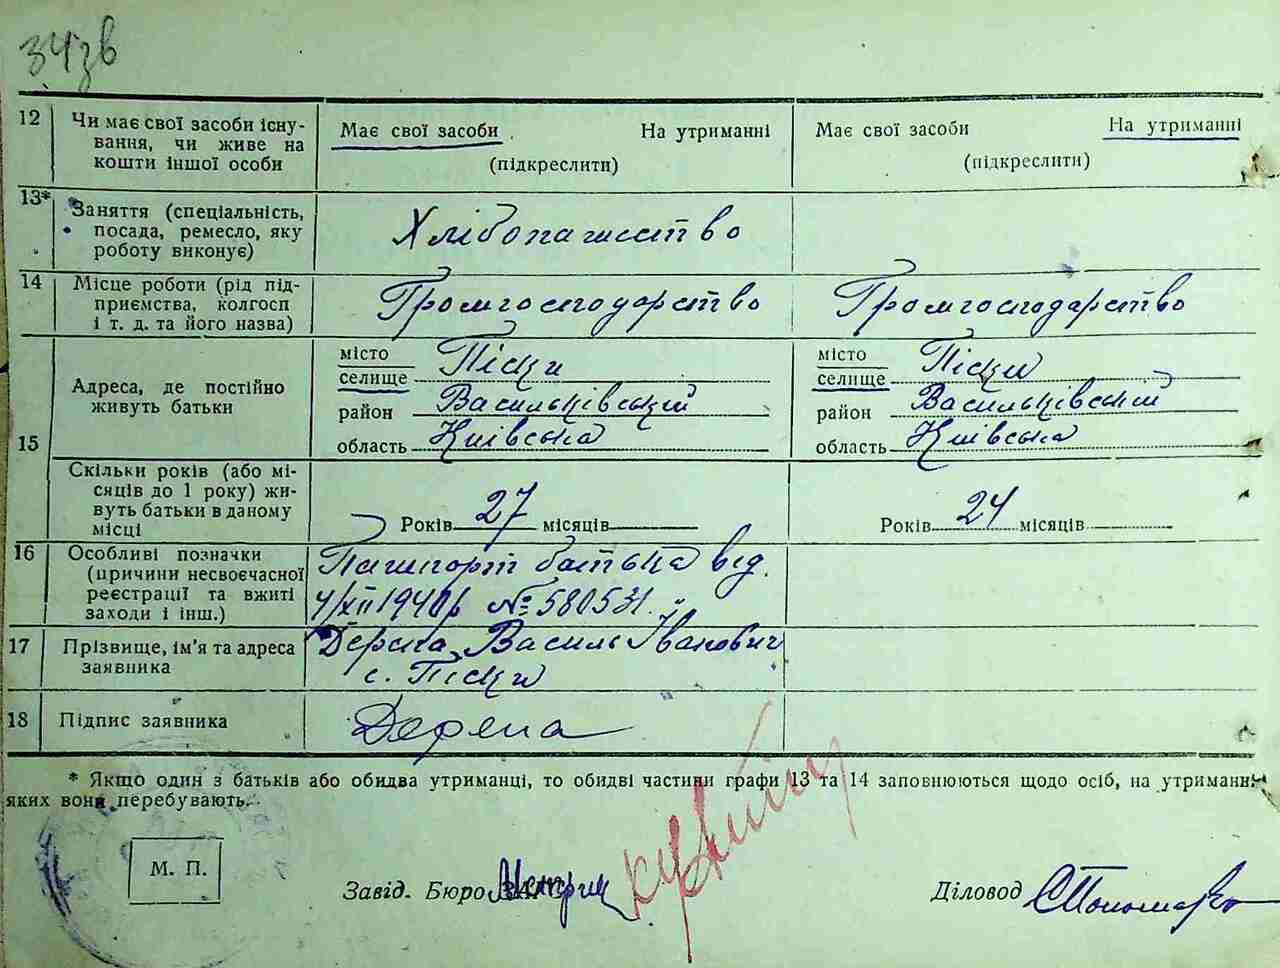 34зв
12 Чи має свої засоби існу-
вання, чи живе на
кошти іншої особи
Має свої засоби На утриманні
(підкреслити)
Має свої засоби На утриманні
(підкреслити)
13* Заняття (спеціальність,
посада, ремесло, яку
роботу виконує)
Хлібопашество
14 Місце роботи (рід під-
приємства, колгосп
і т. д. та його назва)
Громгосподарство
Громгосподарство
15 Адреса, де постійно
живуть батьки
місто
селище Піски
район Васильківський
область Київська
місто
селище Піски
район Васильківський
область Київська
Скільки років (або мі-
сяців до 1 року) жи-
вуть батьки в даному
місці
Років 27 місяців
Років 24 місяців
16 Особливі позначки
(причини несвоєчасної
реєстрації та вжиті
заходи і інш.)
Пашпорт батька від.
4/XII 1940р №580531.
17 Прізвище, ім'я та адреса
заявника
Дерепа Василь Іванович
с. Піски
18 Підпис заявника
Дерепа
* Якщо один з батьків або обидва утриманці, то обидві частини графи 13 та 14 заповнюються щодо осіб, на утриманні
яких вони перебувають.
М. П.
Завід. Бюро ЗАГС
Діловод СПономар